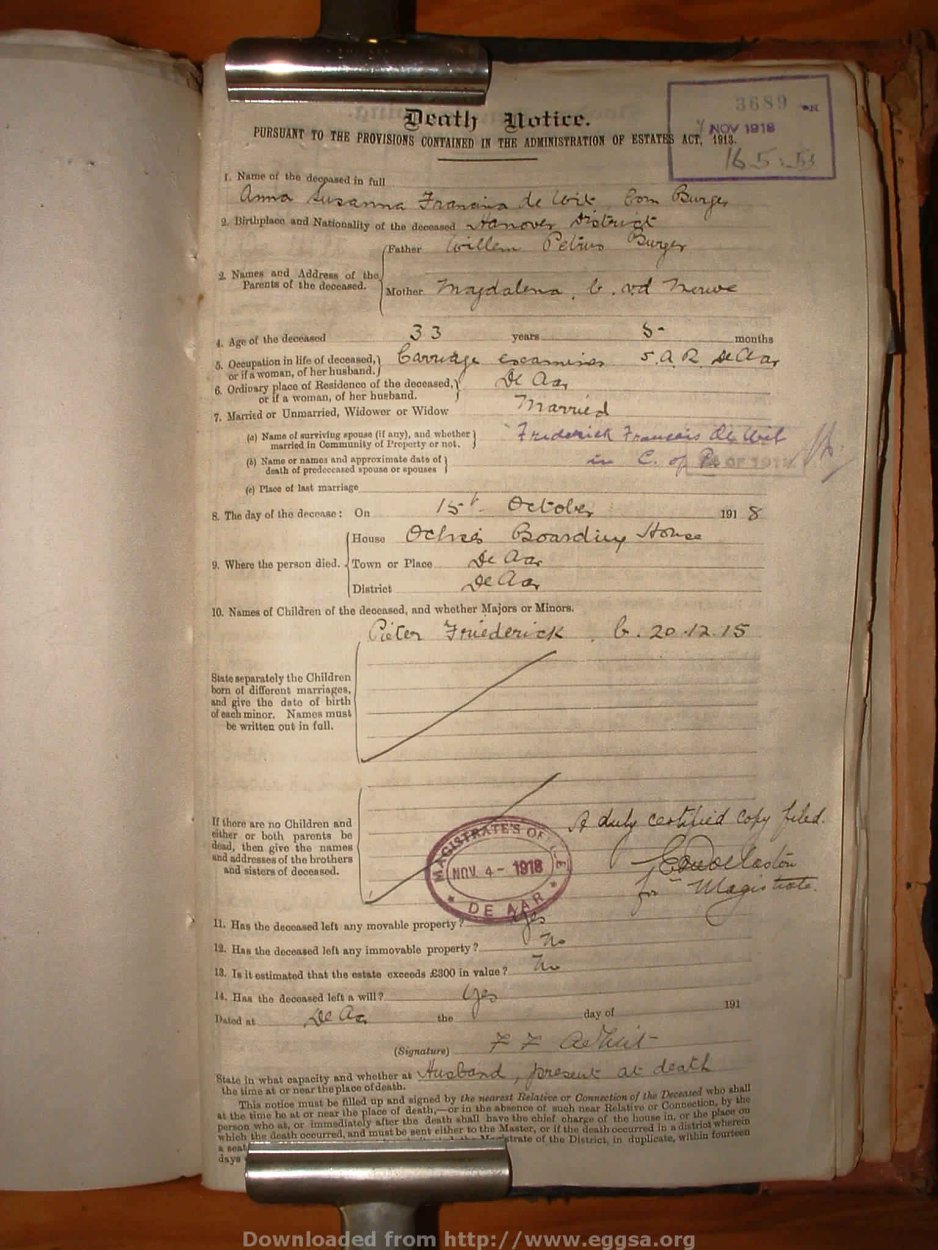 Death Notice.
PURSUANT TO THE PROVISIONS CONTAINED IN THE ADMINISTRATION OF ESTATES ACT, 1913.
3689
NOV 1918
1. Name of the deceased in full
Anna Susanna Francina de Wit, born Burger
2. Birthplace and Nationality of the deceased Hanover District
2. Names and Address of the Parents of the deceased.
Father Willem Petrus Burger
Mother Magdalena, b. vd Merwe
4. Age of the deceased 33 years 5 months
5. Occupation in life of deceased, or if a woman, of her husband. Carriage examiner S.A.R. De Aar
6. Ordinary place of Residence of the deceased, or if a woman, of her husband. De Aar
7. Married or Unmarried, Widower or Widow Married
(a) Name of surviving spouse (if any), and whether married in Community of Property or not. Frederick Francois de Wit
(b) Name or names and approximate date of death of predeceased spouse or spouses in C. of P.
(c) Place of last marriage
8. The day of the decease: On 15th October 1918
9. Where the person died.
House Boarding House
Town or Place De Aar
District De Aar
10. Names of Children of the deceased, and whether Majors or Minors.
Pieter Friederick, b. 20.12.15
State separately the Children
born of different marriages,
and give the date of birth
of each minor. Names must
be written out in full.
If there are no Children and
either or both parents be
dead, then give the names
and addresses of the brothers
and sisters of deceased.
A duly certified copy filed.
for Magistrate.
MAGISTRATE'S OFFICE
NOV. 4 - 1918
DE AAR
11. Has the deceased left any movable property? Yes
12. Has the deceased left any immovable property? No
13. Is it estimated that the estate exceeds £300 in value? No
14. Has the deceased left a will? Yes
Dated at De Aar the day of 191
(Signature) F F de Wit
State in what capacity and whether at the time at or near the place of death. Husband, present at death
This notice must be filled up and signed by the nearest Relative or Connection of the Deceased who shall
at the time be at or near the place of death,—or in the absence of such near Relative or Connection, by the
person who at, or immediately after the death shall have the chief charge of the house in, or the place on
which the death occurred, and must be sent either to the Master, or if the death occurred in a district wherein
a seat Magistrate of the District, in duplicate, within fourteen
days
Downloaded from http://www.eggsa.org